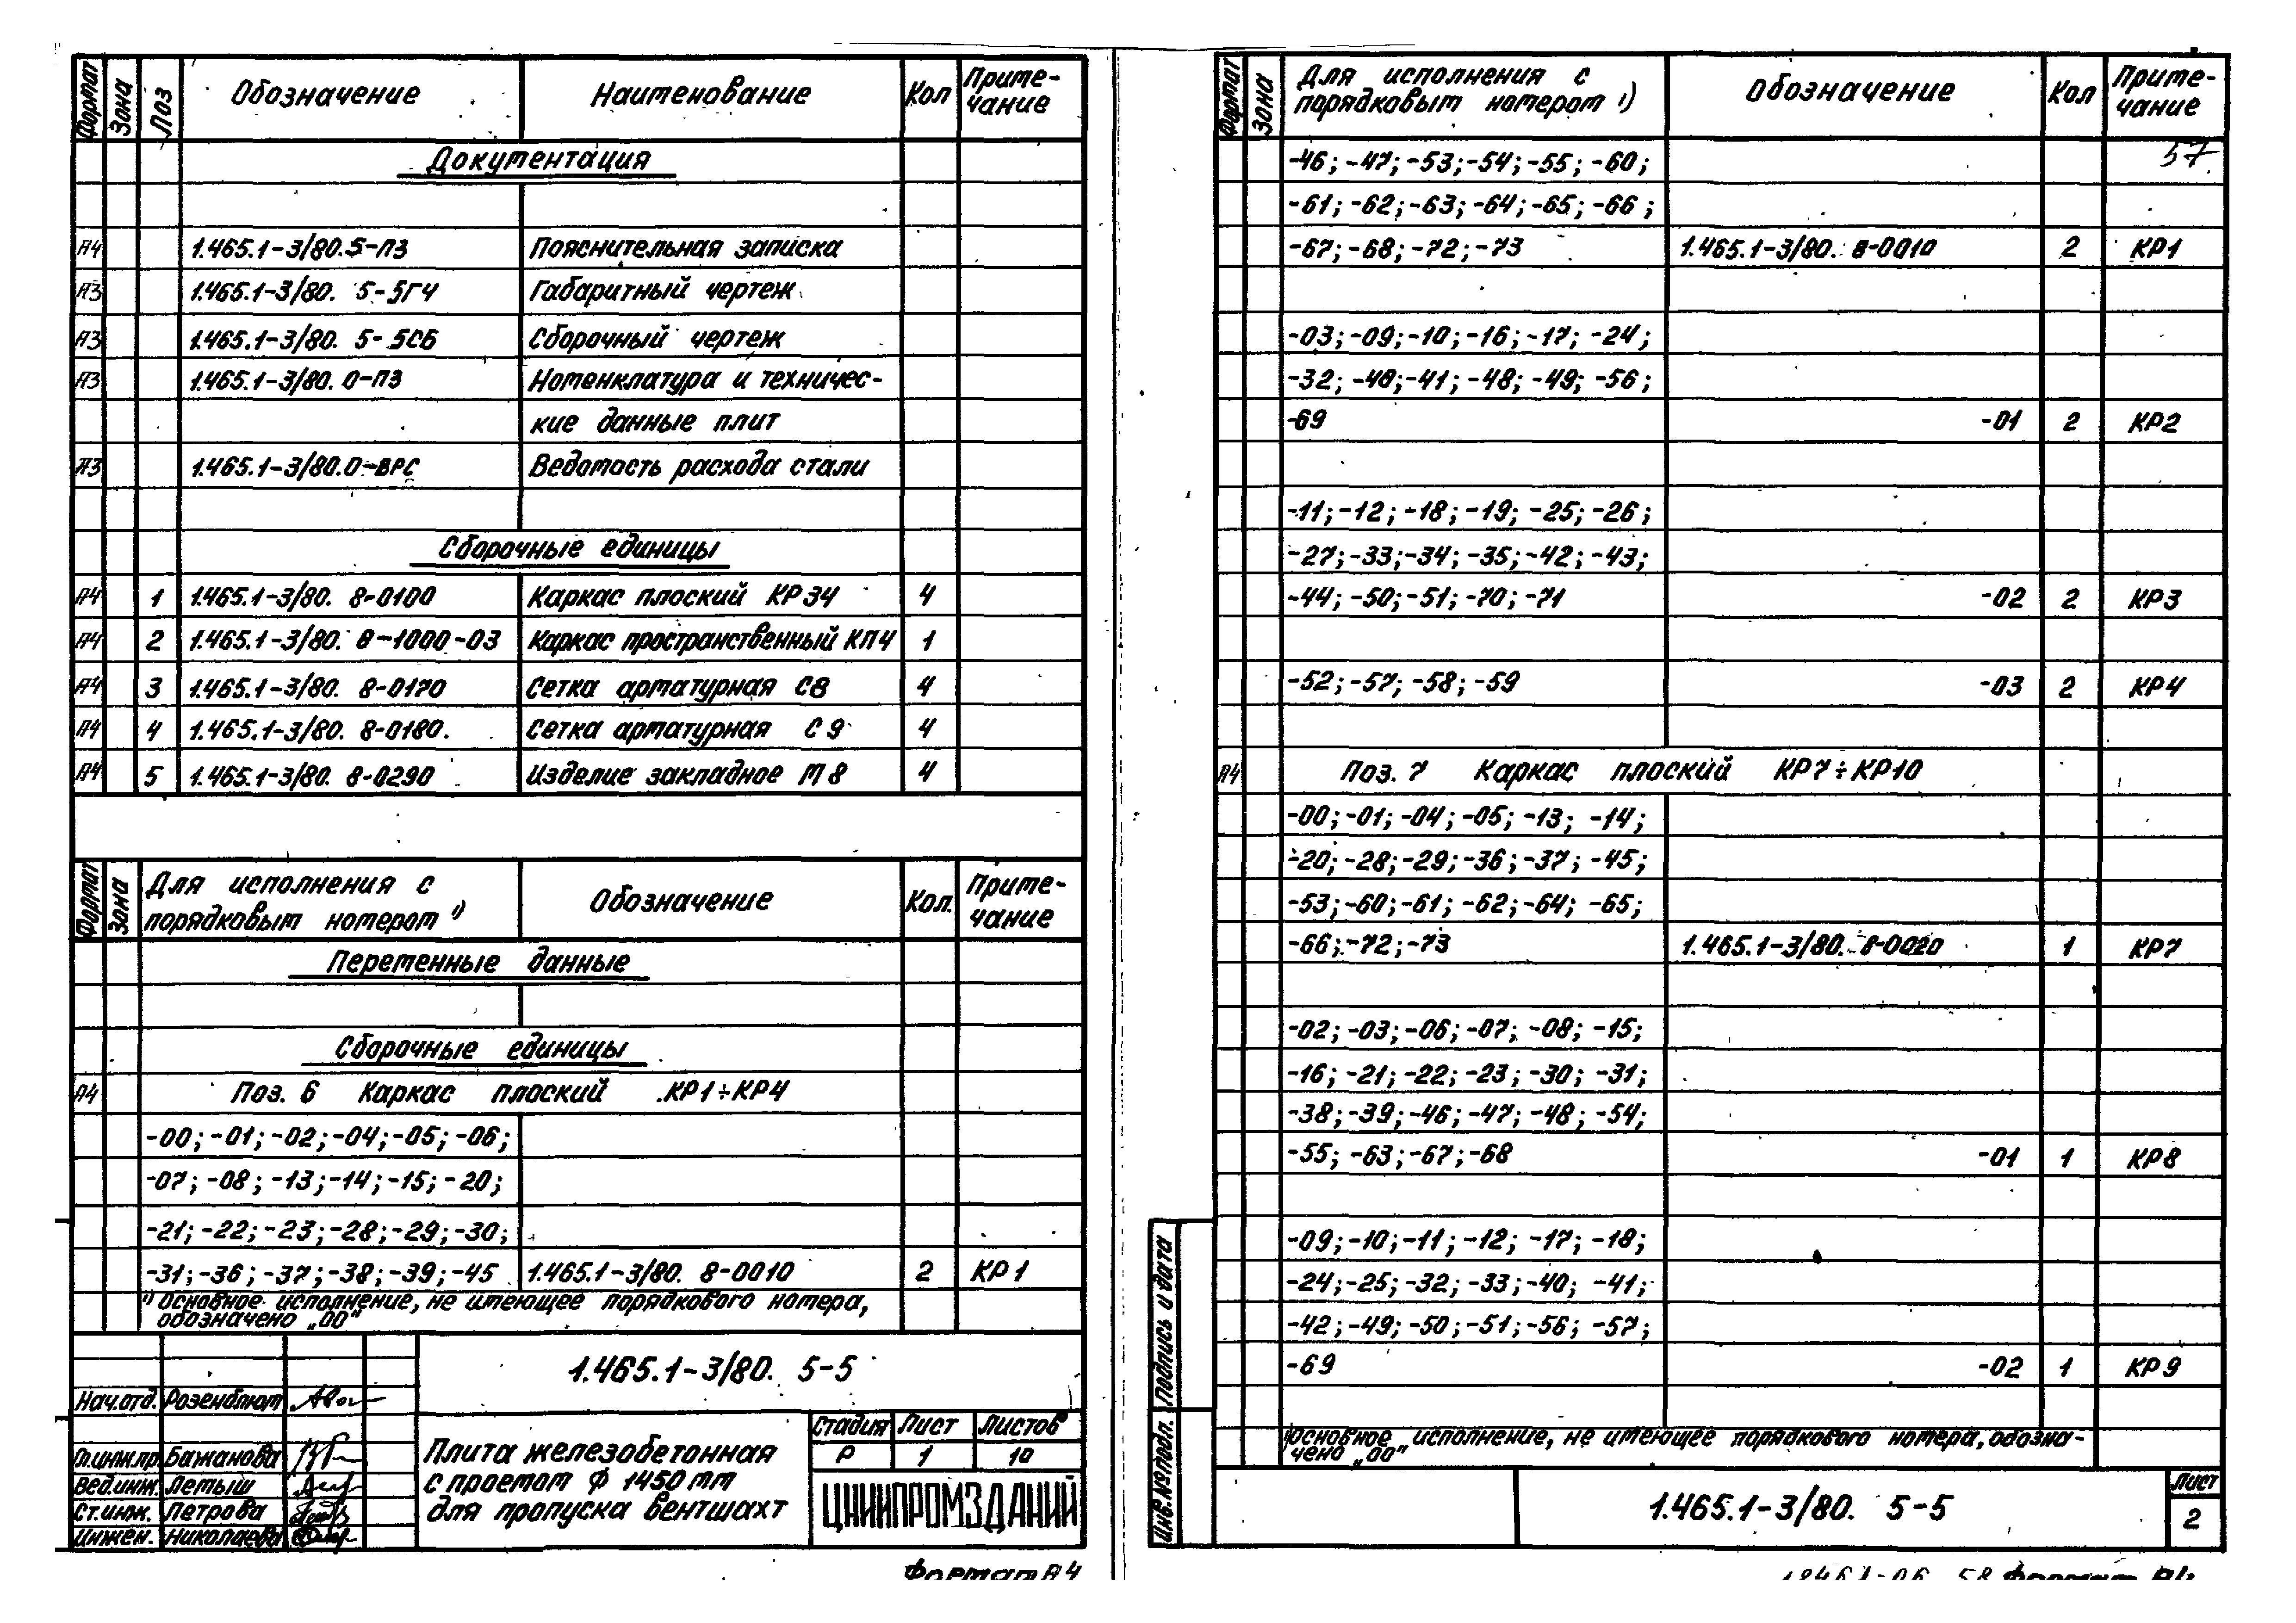 Формат Зона Поз Обозначение Наименование Кол Приме-
чание
Документация
А4 1.465.1-3/80.5-ПЗ Пояснительная записка
А3 1.465.1-3/80. 5-5ГЧ Габаритный чертеж
А3 1.465.1-3/80. 5-5СБ Сборочный чертеж
А3 1.465.1-3/80. 0-ПЗ Номенклатура и техничес-
кие данные плит
А3 1.465.1-3/80.0-ВРС Ведомость расхода стали
Сборочные единицы
А4 1 1.465.1-3/80. 8-0100 Каркас плоский КР34 4
А4 2 1.465.1-3/80. 8-1000-03 Каркас пространственный КП4 1
А4 3 1.465.1-3/80. 8-0170 Сетка арматурная С8 4
А4 4 1.465.1-3/80. 8-0180. Сетка арматурная С9 4
А4 5 1.465.1-3/80. 8-0290 Изделие закладное М8 4
Формат Зона Для исполнения с
порядковым номером ¹) Обозначение Кол. Приме-
чание
Переменные данные
Сборочные единицы
А4 Поз. 6 Каркас плоский КР1÷КР4
-00; -01; -02; -04; -05; -06;
-07; -08; -13; -14; -15; -20;
-21; -22; -23; -28; -29; -30;
-31; -36; -37; -38; -39; -45 1.465.1-3/80. 8-0010 2 КР1
¹) Основное исполнение, не имеющее порядкового номера,
обозначено „00"
1.465.1-3/80. 5-5
Нач.отд. Розенблюм
Гл.инж.пр. Бажанова
Вед.инж. Летыш
Ст.инж. Петрова
Инжен. Николаева
Плита железобетонная
с проемом ф 1450 мм
для пропуска вентшахт
Стадия Лист Листов
Р 1 10
ЦНИИПРОМЗДАНИЙ
Формат А4
Формат Зона Для исполнения с
порядковым номером ¹) Обозначение Кол Приме-
чание
57
-46; -47; -53; -54; -55; -60;
-61; -62; -63; -64; -65; -66;
-67; -68; -72; -73 1.465.1-3/80. 8-0010 2 КР1
-03; -09; -10; -16; -17; -24;
-32; -40; -41; -48; -49; -56;
-69 -01 2 КР2
-11; -12; -18; -19; -25; -26;
-27; -33; -34; -35; -42; -43;
-44; -50; -51; -70; -71 -02 2 КР3
-52; -57; -58; -59 -03 2 КР4
А4 Поз. 7 Каркас плоский КР7÷КР10
-00; -01; -04; -05; -13; -14;
-20; -28; -29; -36; -37; -45;
-53; -60; -61; -62; -64; -65;
-66; -72; -73 1.465.1-3/80. 8-0020 1 КР7
-02; -03; -06; -07; -08; -15;
-16; -21; -22; -23; -30; -31;
-38; -39; -46; -47; -48; -54;
-55; -63; -67; -68 -01 1 КР8
-09; -10; -11; -12; -17; -18;
-24; -25; -32; -33; -40; -41;
-42; -49; -50; -51; -56; -57;
-69 -02 1 КР9
¹)Основное исполнение, не имеющее порядкового номера, обозна-
чено „00"
Инв.№подл. Подпись и дата
1.465.1-3/80. 5-5
Лист
2
18461-06 58 Формат А4